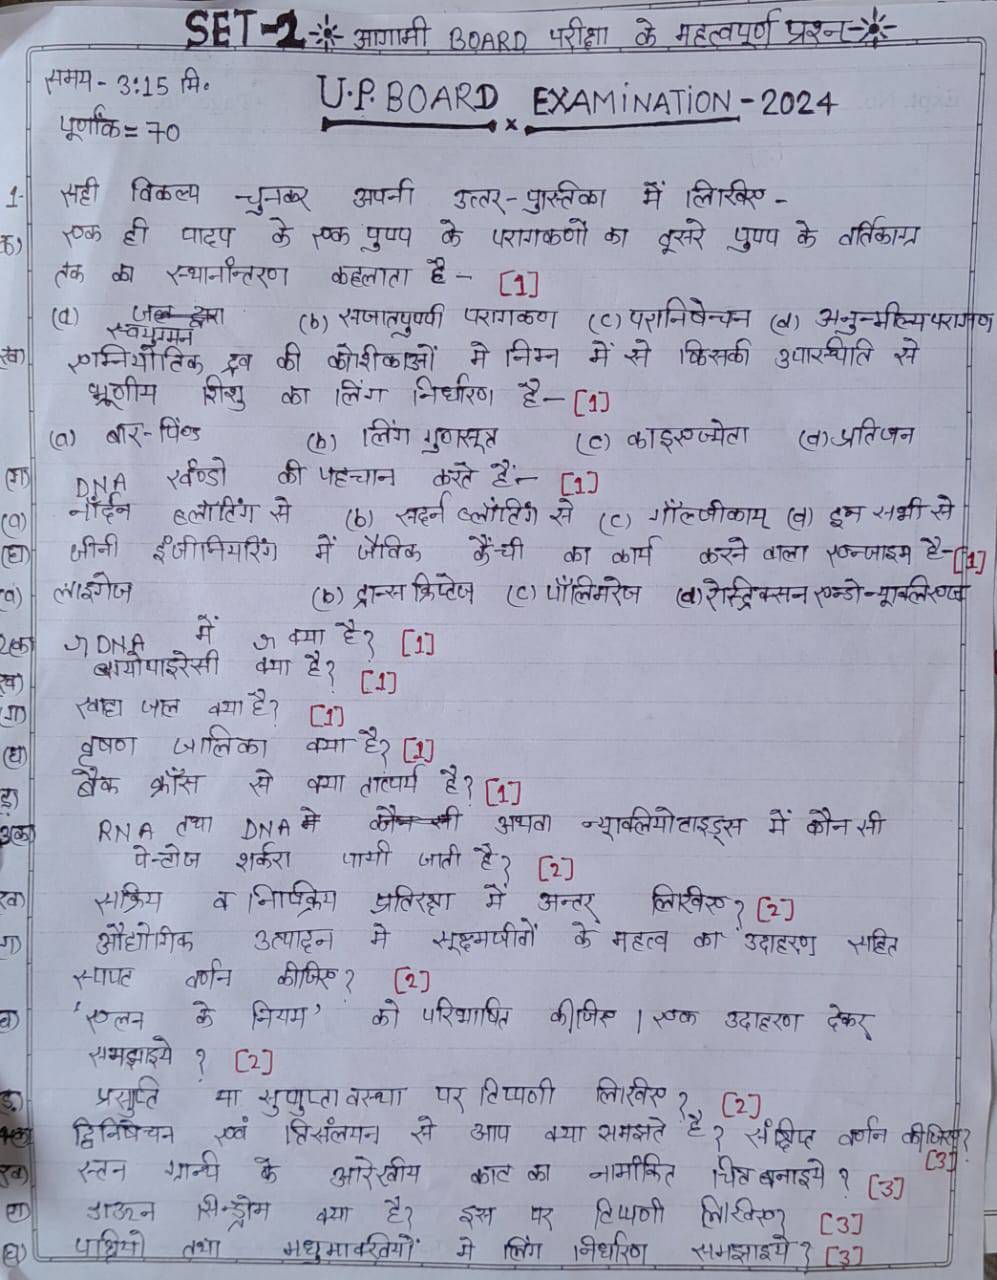 SET-2 आगामी BOARD परीक्षा के महत्वपूर्ण प्रश्न
समय - 3:15 मि.
U.P. BOARD x EXAMiNATION - 2024
पूर्णांक = 70
1- सही विकल्प चुनकर अपनी उत्तर-पुस्तिका में लिखिए -
क) एक ही पादप के एक पुष्प के परागकणों का दूसरे पुष्प के वर्तिकाग्र
तक का स्थानान्तरण कहलाता है - [1]
(a) स्वयुग्मन (b) सजातपुष्पी परागकण (c) परानिषेचन (d) अनुन्मील्यपरागण
ख) एम्नियोटिक द्रव की कोशिकाओं मे निम्न में से किसकी उपास्थिति से
भ्रूणीय शिशु का लिंग निर्धारण है - [1]
(a) बार-पिंण्ड (b) लिंग गुणसूत्र (c) काइएज्मेटा (d) प्रतिजन
(ग) DNA खण्डो की पहचान करते हैं:- [1]
(a) नॉर्दन ब्लोटिंग से (b) सदर्न ब्लॉटिंग से (c) गॉल्जीकाय (d) इन सभी से
(घ) जीनी इंजीनियरिंग में जैविक कैंची का कार्य करने वाला एन्जाइम है- [1]
(a) लाइगेज (b) ट्रान्स क्रिप्टेज (c) पॉलिमरेज (d) रेस्ट्रिक्सन एण्डोन्यूक्लिएज
2(क) J DNA में J क्या है? [1]
ख) बायोपाइरेसी क्या है? [1]
(ग) खाद्य जाल क्या है? [1]
(घ) वृषण जालिका क्या है? [1]
ड़) बैक क्रॉस से क्या तात्पर्य है? [1]
3(क) RNA तथा DNA मे अथवा न्यूक्लियोटाइड्स में कौन सी
पेन्टोज शर्करा पायी जाती है? [2]
ख) सक्रिय व निष्क्रिय प्रतिरक्षा में अन्तर लिखिए? [2]
ग) औद्योगिक उत्पादन मे सूक्ष्मजीवों के महत्व का उदाहरण सहित
स्पष्ट वर्णन कीजिए? [2]
घ) 'एलन के नियम' को परिभाषित कीजिए। एक उदाहरण देकर
समझाइये ? [2]
ड़. प्रसुप्ति या सुषुप्तावस्था पर टिप्पणी लिखिए? [2]
4(क) द्विनिषेचन एवं त्रिसंलयन से आप क्या समझते है? संक्षिप्त वर्णन कीजिए?
[3]
ख) स्तन ग्रन्थी के आरेखीय काट का नामांकित चित्र बनाइये? [3]
ग) डाऊन सिन्ड्रोम क्या है? इस पर टिप्पणी लिखिए? [3]
घ) पक्षियो तथा मधुमक्खियों मे लिंग निर्धारण समझाइये? [3]